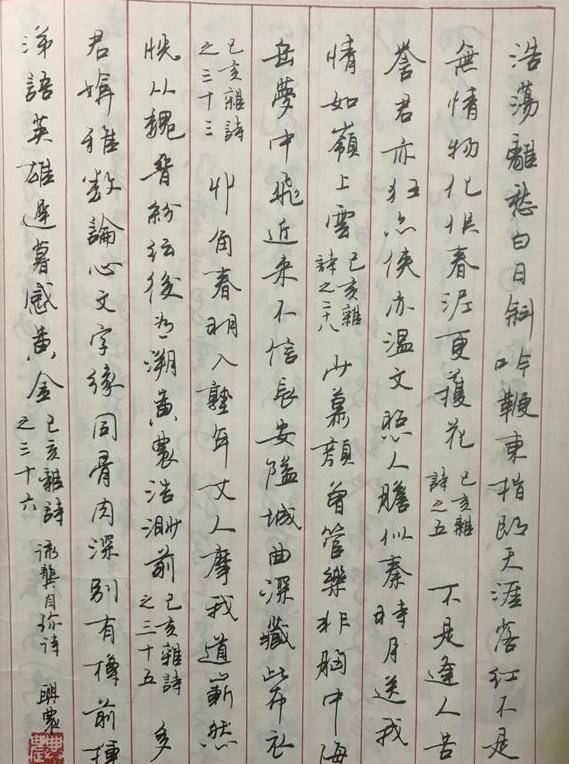 浩蕩離愁白日斜吟鞭東指即天涯落紅不是
無情物化作春泥更護花 己亥雜詩之五 不是逢人苦
譽君亦狂亦俠亦溫文照人膽似秦時月送我
情如嶺上雲 己亥雜詩之二八 少慕顏曾管樂非胸中海
岳夢中飛近來不信長安隘城曲深藏此布衣
己亥雜詩之三十三 丱角春明入塾年丈人摩我道嶄然
恍從魏晉紛紜後為溯黃農浩渺前 己亥雜詩之三十五 多
君媕雅數論心文字緣同骨肉深別有樽前揮
涕語英雄遲暮感黃金 己亥雜詩之三十六 龔自珍詩 興農